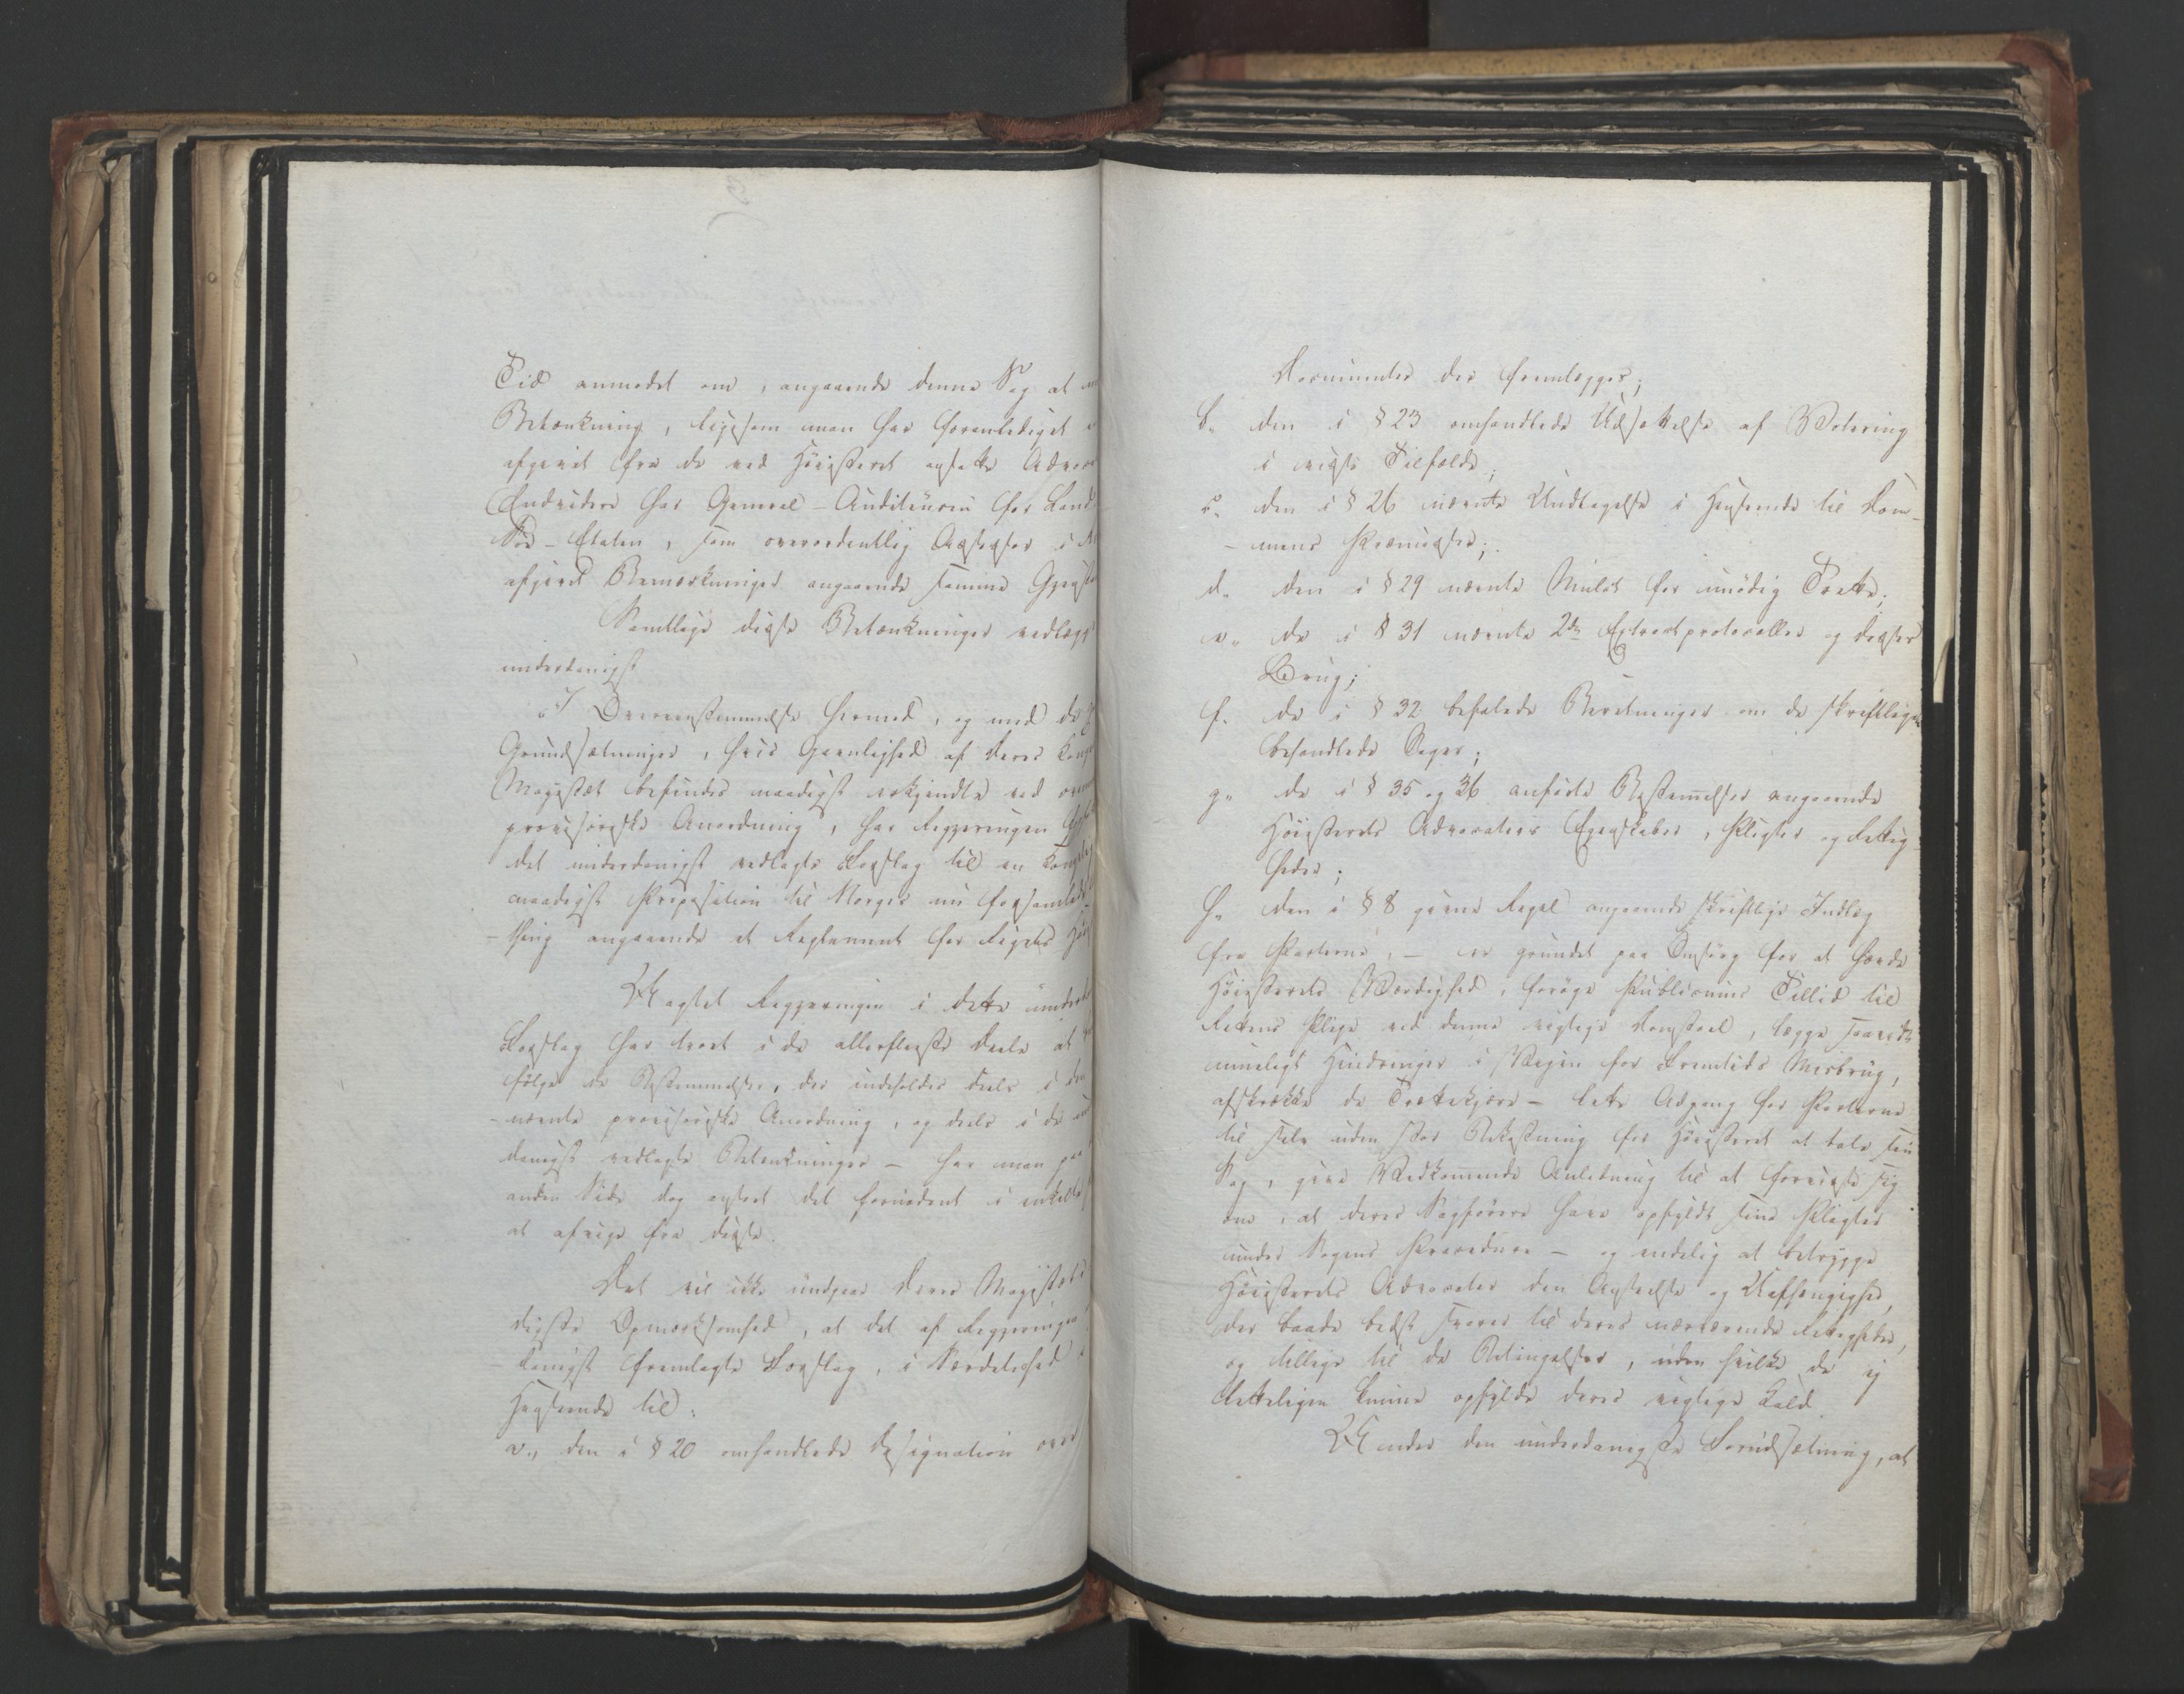 Tid anmodet om, angaaende denne Sag at
Betænkning, ligesom man har foranlediget
afgivet fra de ved Høiesteret ansatte Advoca
Endvidere har General-Auditeuren for Land
Søe-Etaten, som overordentlig Assessor i
afgivet Bemærkninger angaaende samme Gjensta
Samtlige disse Betænkninger vedlægges
underdanigst
I Overeensstemmelse hermed, og med de
Grundsætninger, hvis Gavnlighed af Deres Konge
Majestæt befindes naadigst erkjendte ved oven
provisoriske Anordning, har Regjeringen
det underdanigst vedlagte Forslag til en Kongelig
naadigst Proposition til Norges nu forsamlede
-thing angaaende et Reglement for Rigets Høi
Uagtet Regjeringen i dette underda
Forslag har troet i de allerfleste Dele at
følge de Bestemmelser, der indeholdes deels i den
-nævnte provisoriske Anordning, og deels i de un
danigst vedlagte Betænkninger - har man paa
anden Side dog anseet det fornødent i enkelte
at afvige fra disse.
Det vil ikke undgaae Deres Majestæts
digste Opmærksomhed, at det af Regjeringen
-danigst fremlagte Forslag, i Særdeleshed i
Henseende til:
a., den i § 20 omhandlede Designation over
Documenter der fremlægges;
b. den i § 23 omhandlede Udsættelse af Votering
i visse Tilfælde;
c. den i § 26 nævnte Undtagelse i Henseende til Dom-
-mens Præmisser;
d. den i § 29 nævnte Mulct for unødig Trætte;
e. de i § 31 nævnte 2de Extractprotocoller og disses
Brug;
f. de i § 32 befalede Beretninger om de skriftligen
behandlede Sager;
g. de i § 35 og 36 anførte Bestemmelser angaaende
Høiesterets Advocaters Egenskaber, Pligter og Rettig-
heder;
h. den i § 8 givne Regel angaaende skriftlige Indlæg
fra Parterne, - er grundet paa Omsorg for at hævde
Høiesterets Værdighed, forøge Publicums Tillid til
Rettens Pleje ved denne vigtige Domstol, lægge saavidt
mueligt Hindringer i Veien for Fremtids Misbrug,
afskrække de Trættekjære - lette Adgang for Parterne
til selv uden stor Bekostning for Høiesteret at tale sin
Sag, give Vedkommende Anledning til at forvisse sig
om, at deres Sagførere have opfyldt sine Pligter
under Sagens Procedure - og endelig at betrygge
Høiesterets Advocater den Anseelse og Uafhængighed,
der baade bedst svarer til deres nærværende Rettigheder,
og tillige til de Betingelser, uden hvilke de ej
retteligen kunne opfylde deres vigtige Kald.
Under den underdanigste Forudsætning, at